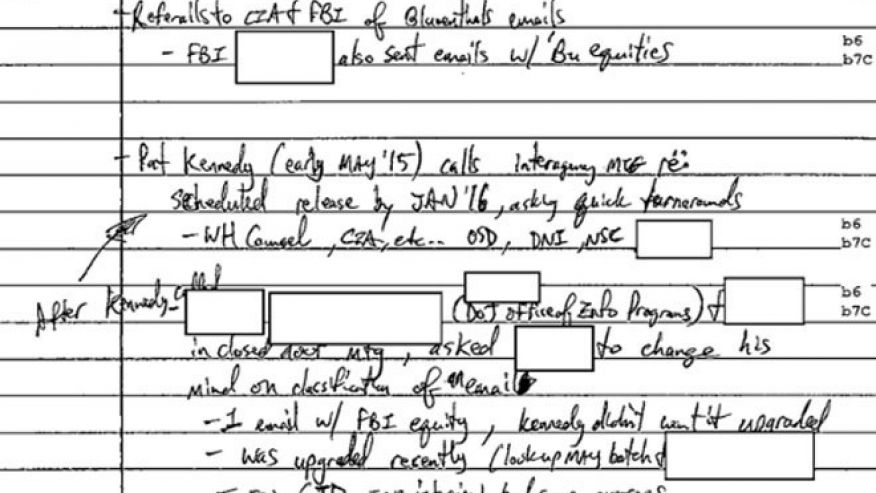 - Referrals to CIA & FBI of Blumenthals emails
- FBI also sent emails w/ Bu equities b6
b7C
- Pat Kennedy (early MAY '15) calls interagency MTG re:
scheduled release by JAN '16, asking quick turnarounds
- WH Counsel, CIA, etc.. OSD, DNI, NSC b6
b7C
After Kennedy called
(DoJ office of Info Programs) & b6
b7C
in closed door mtg, asked to change his
mind on classification of email
- 1 email w/ FBI equity, Kennedy didn't want it upgraded
- was upgraded recently (lookup MAY batch